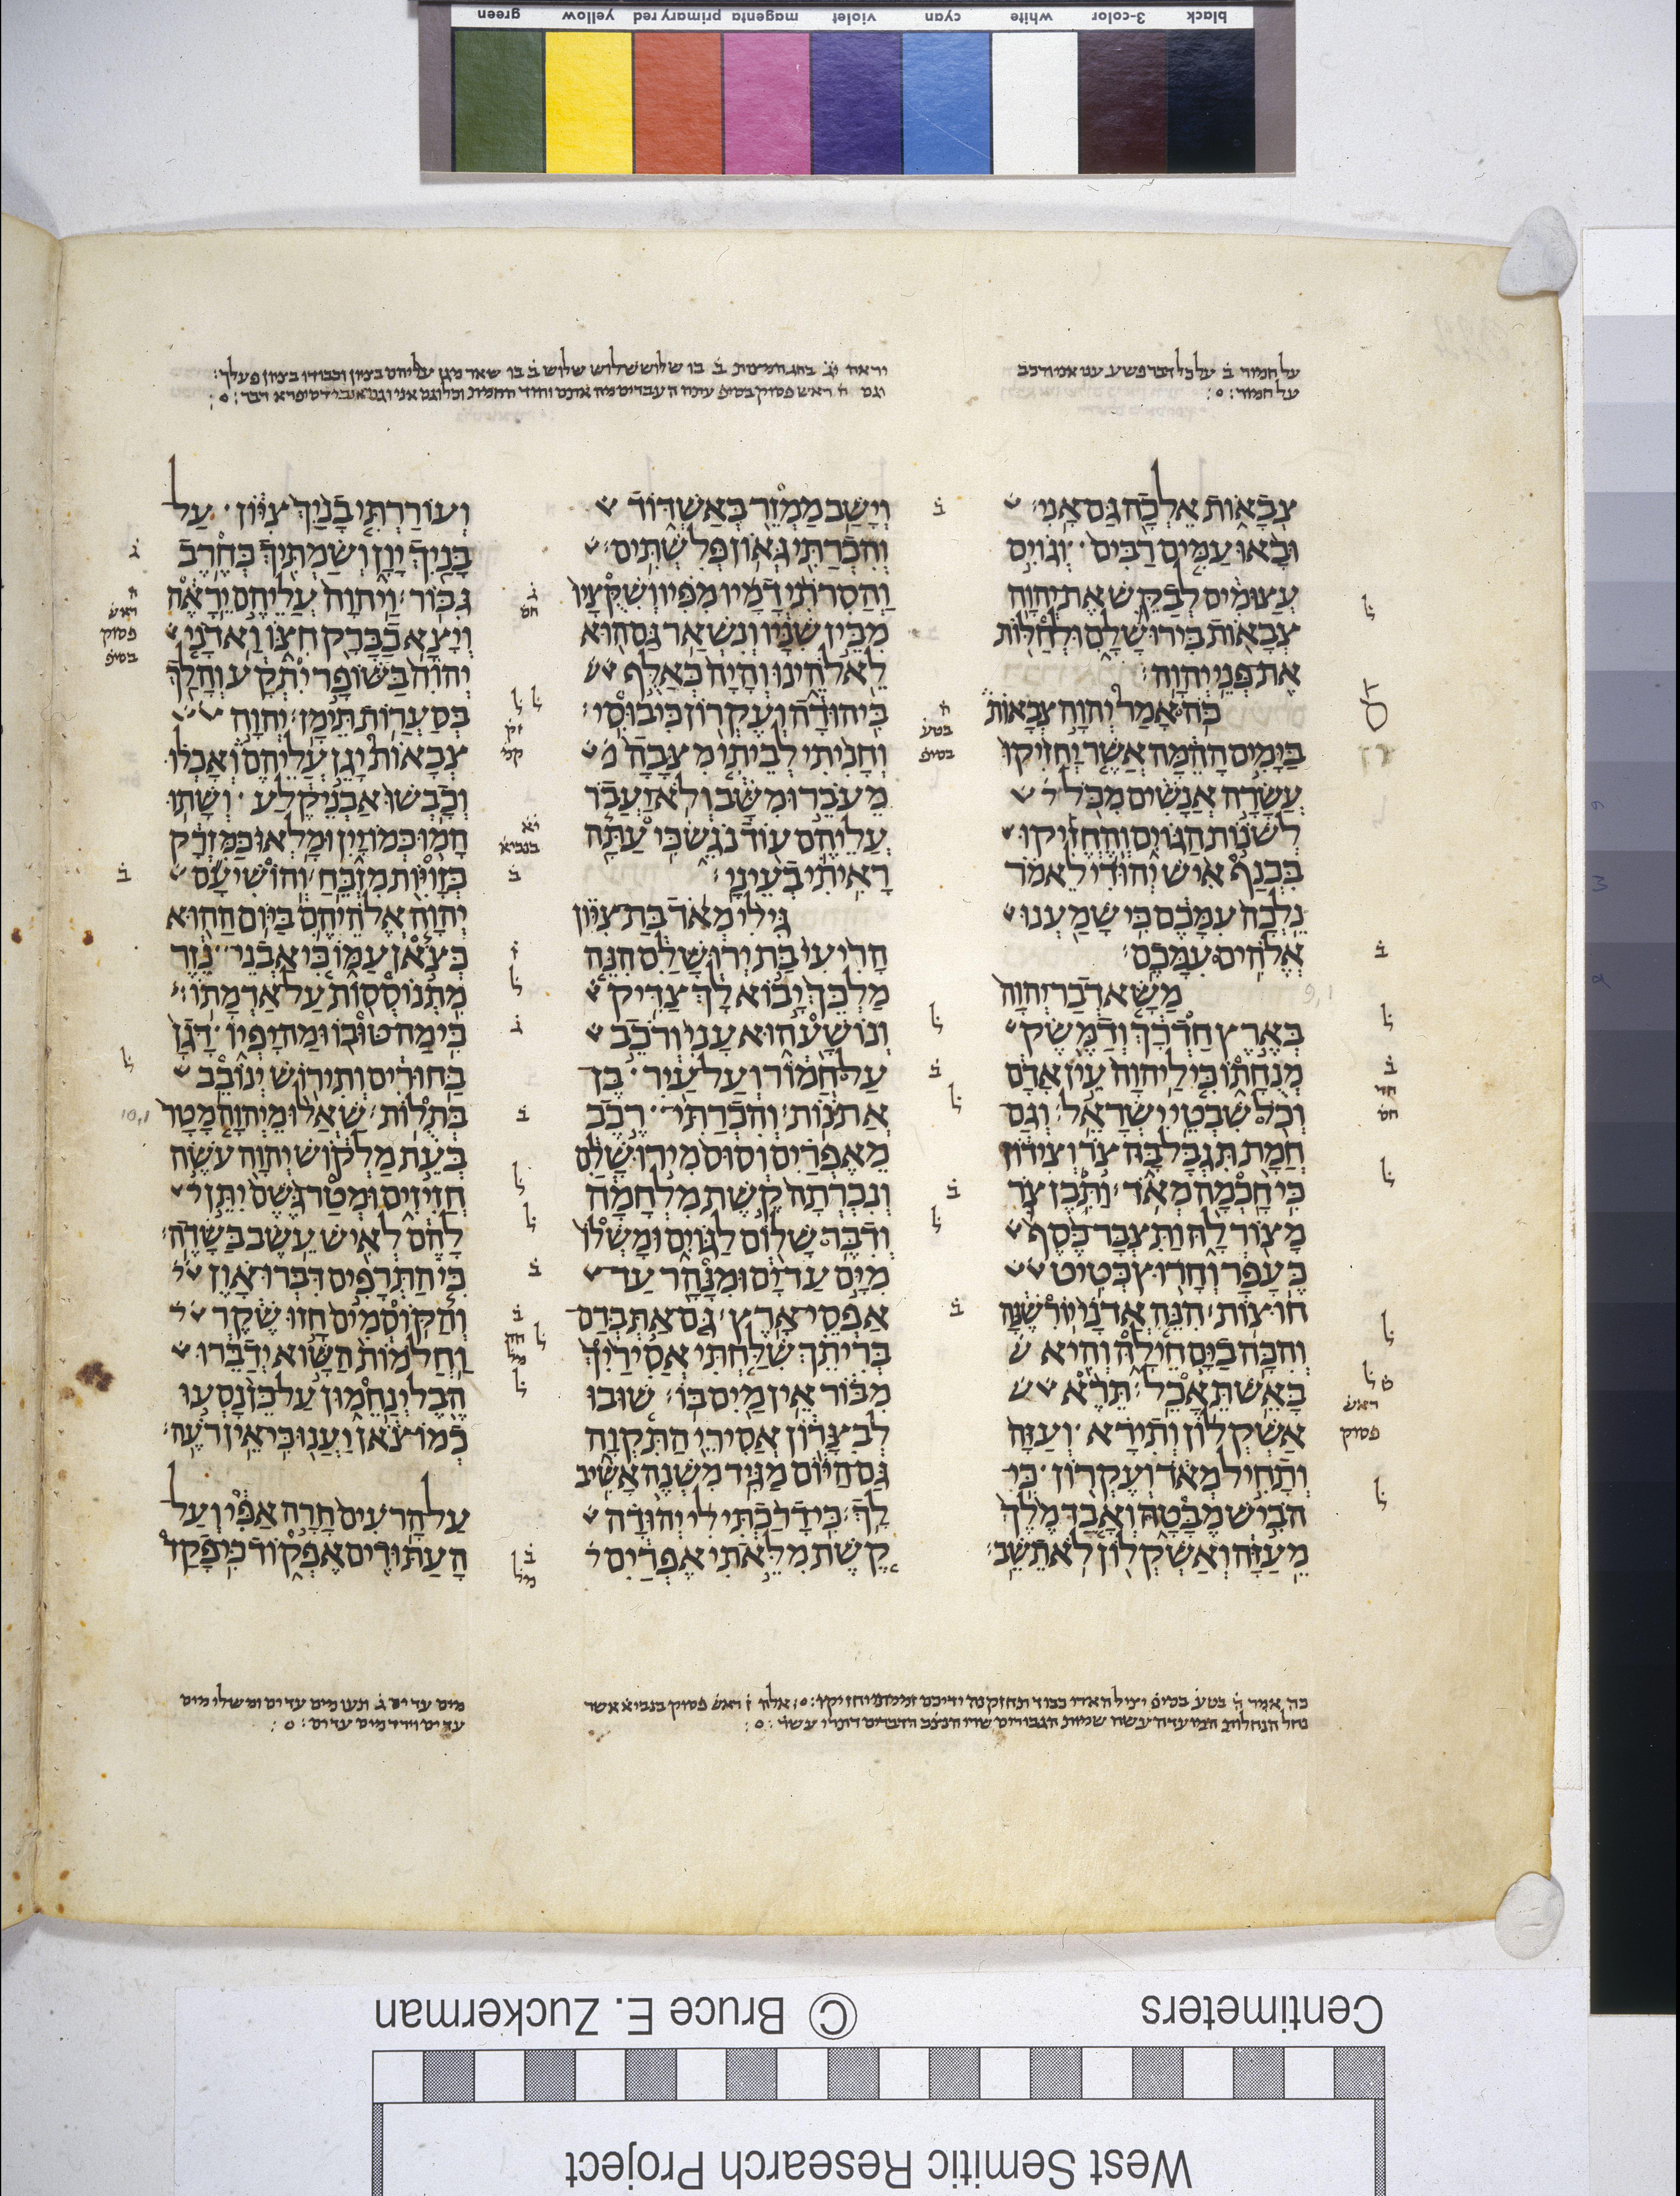 black 3-color white cyan violet magenta primary red yellow green
על חמור ב על כל דבר פשע
על חמור
צבאות אלכה גם אני
ובאו עמים רבים וגוים
עצומים לבקש את יהוה
צבאות בירושלם ולחלות
את פני יהוה
כה אמר יהוה צבאות
בימים ההמה אשר יחזיקו
עשרה אנשים מכל
לשנות הגוים והחזיקו
בכנף איש יהודי לאמר
נלכה עמכם כי שמענו
אלהים עמכם
משא דבר יהוה
בארץ חדרך ודמשק
מנחתו כי ליהוה עין אדם
וכל שבטי ישראל וגם
חמת תגבל בה צר וצידון
כי חכמה מאד ותבן צר
מצור לה ותצבר כסף
כעפר וחרוץ כטיט
חוצות הנה אדני יורשנה
והכה בים חילה והיא
באש תאכל תרא
אשקלון ותירא ועזה
ותחיל מאד ועקרון כי
הביש מבטה ואבד מלך
מעזה ואשקלון לא תשב
וישב ממזר באשדוד
והכרתי גאון פלשתים
והסרתי דמיו מפיו ושקציו
מבין שניו ונשאר גם הוא
לאלהינו והיה כאלף
ביהודה ועקרון כיבוסי
וחניתי לביתי מצבה
מעבר ומשב ולא יעבר
עליהם עוד נגש כי עתה
ראיתי בעיני
גילי מאד בת ציון
הריעי בת ירושלם הנה
מלכך יבוא לך צדיק
ונושע הוא עני ורכב
על חמור ועל עיר בן
אתנות והכרתי רכב
מאפרים וסוס מירושלם
ונכרתה קשת מלחמה
ודבר שלום לגוים ומשלו
מים עד ים ומנהר עד
אפסי ארץ גם את בדם
בריתך שלחתי אסיריך
מבור אין מים בו שובו
לבצרון אסירי התקוה
גם היום מגיד משנה אשיב
לך כי דרכתי לי יהודה
קשת מלאתי אפרים
ועוררתי בניך ציון על
בניך יון ושמתיך כחרב
גבור ויהוה עליהם יראה
ויצא כברק חצו ואדני
יהוה בשופר יתקע והלך
בסערות תימן יהוה
צבאות יגן עליהם ואכלו
וכבשו אבני קלע ושתו
המו כמו יין ומלאו כמזרק
כזויות מזבח והושיעם
יהוה אלהיהם ביום ההוא
כצאן עמו כי אבני נזר
מתנוססות על אדמתו
כי מה טובו ומה יפיו דגן
בחורים ותירוש ינובב
בתלות שאלו מיהוה מטר
בעת מלקוש יהוה עשה
חזיזים ומטר גשם יתן
להם לאיש עשב בשדה
כי התרפים דברו און
והקוסמים חזו שקר
וחלמות השוא ידברו
הבל ינחמון על כן נסעו
כמו צאן יענו כי אין רעה
על הרעים חרה אפי ועל
העתודים אפקוד כי פקד
Centimeters
© Bruce E. Zuckerman
West Semitic Research Project